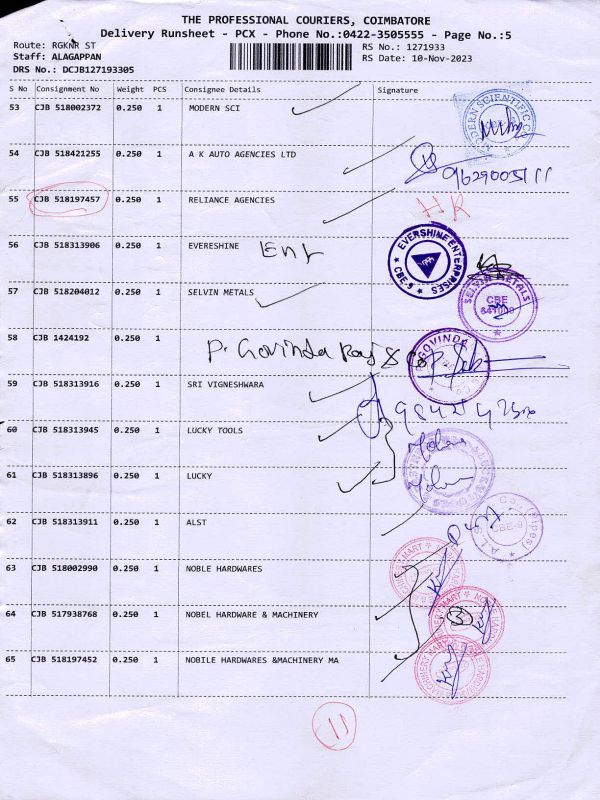 THE PROFESSIONAL COURIERS, COIMBATORE
Delivery Runsheet - PCX - Phone No.:0422-3505555 - Page No.:5
Route: RGKNR ST
RS No.: 1271933
Staff: ALAGAPPAN
RS Date: 10-Nov-2023
DRS No.: DCJB127193305
S No Consignment No Weight PCS Consignee Details Signature
53 CJB 518002372 0.250 1 MODERN SCI
54 CJB 518421255 0.250 1 A K AUTO AGENCIES LTD
9629005111
55 CJB 518197457 0.250 1 RELIANCE AGENCIES
HR
56 CJB 518313906 0.250 1 EVERESHINE Ent
EVERSHINE ENTERPRISES
CBE-9
57 CJB 518204012 0.250 1 SELVIN METALS
SELVIN METALS
CBE
58 CJB 1424192 0.250 1
P. Govinda Raj & Co
GOVINDA
59 CJB 518313916 0.250 1 SRI VIGNESHWARA
60 CJB 518313945 0.250 1 LUCKY TOOLS
61 CJB 518313896 0.250 1 LUCKY
62 CJB 518313911 0.250 1 ALST
CBE-9
63 CJB 518002990 0.250 1 NOBLE HARDWARES
64 CJB 517938768 0.250 1 NOBEL HARDWARE & MACHINERY
65 CJB 518197452 0.250 1 NOBILE HARDWARES &MACHINERY MA
11